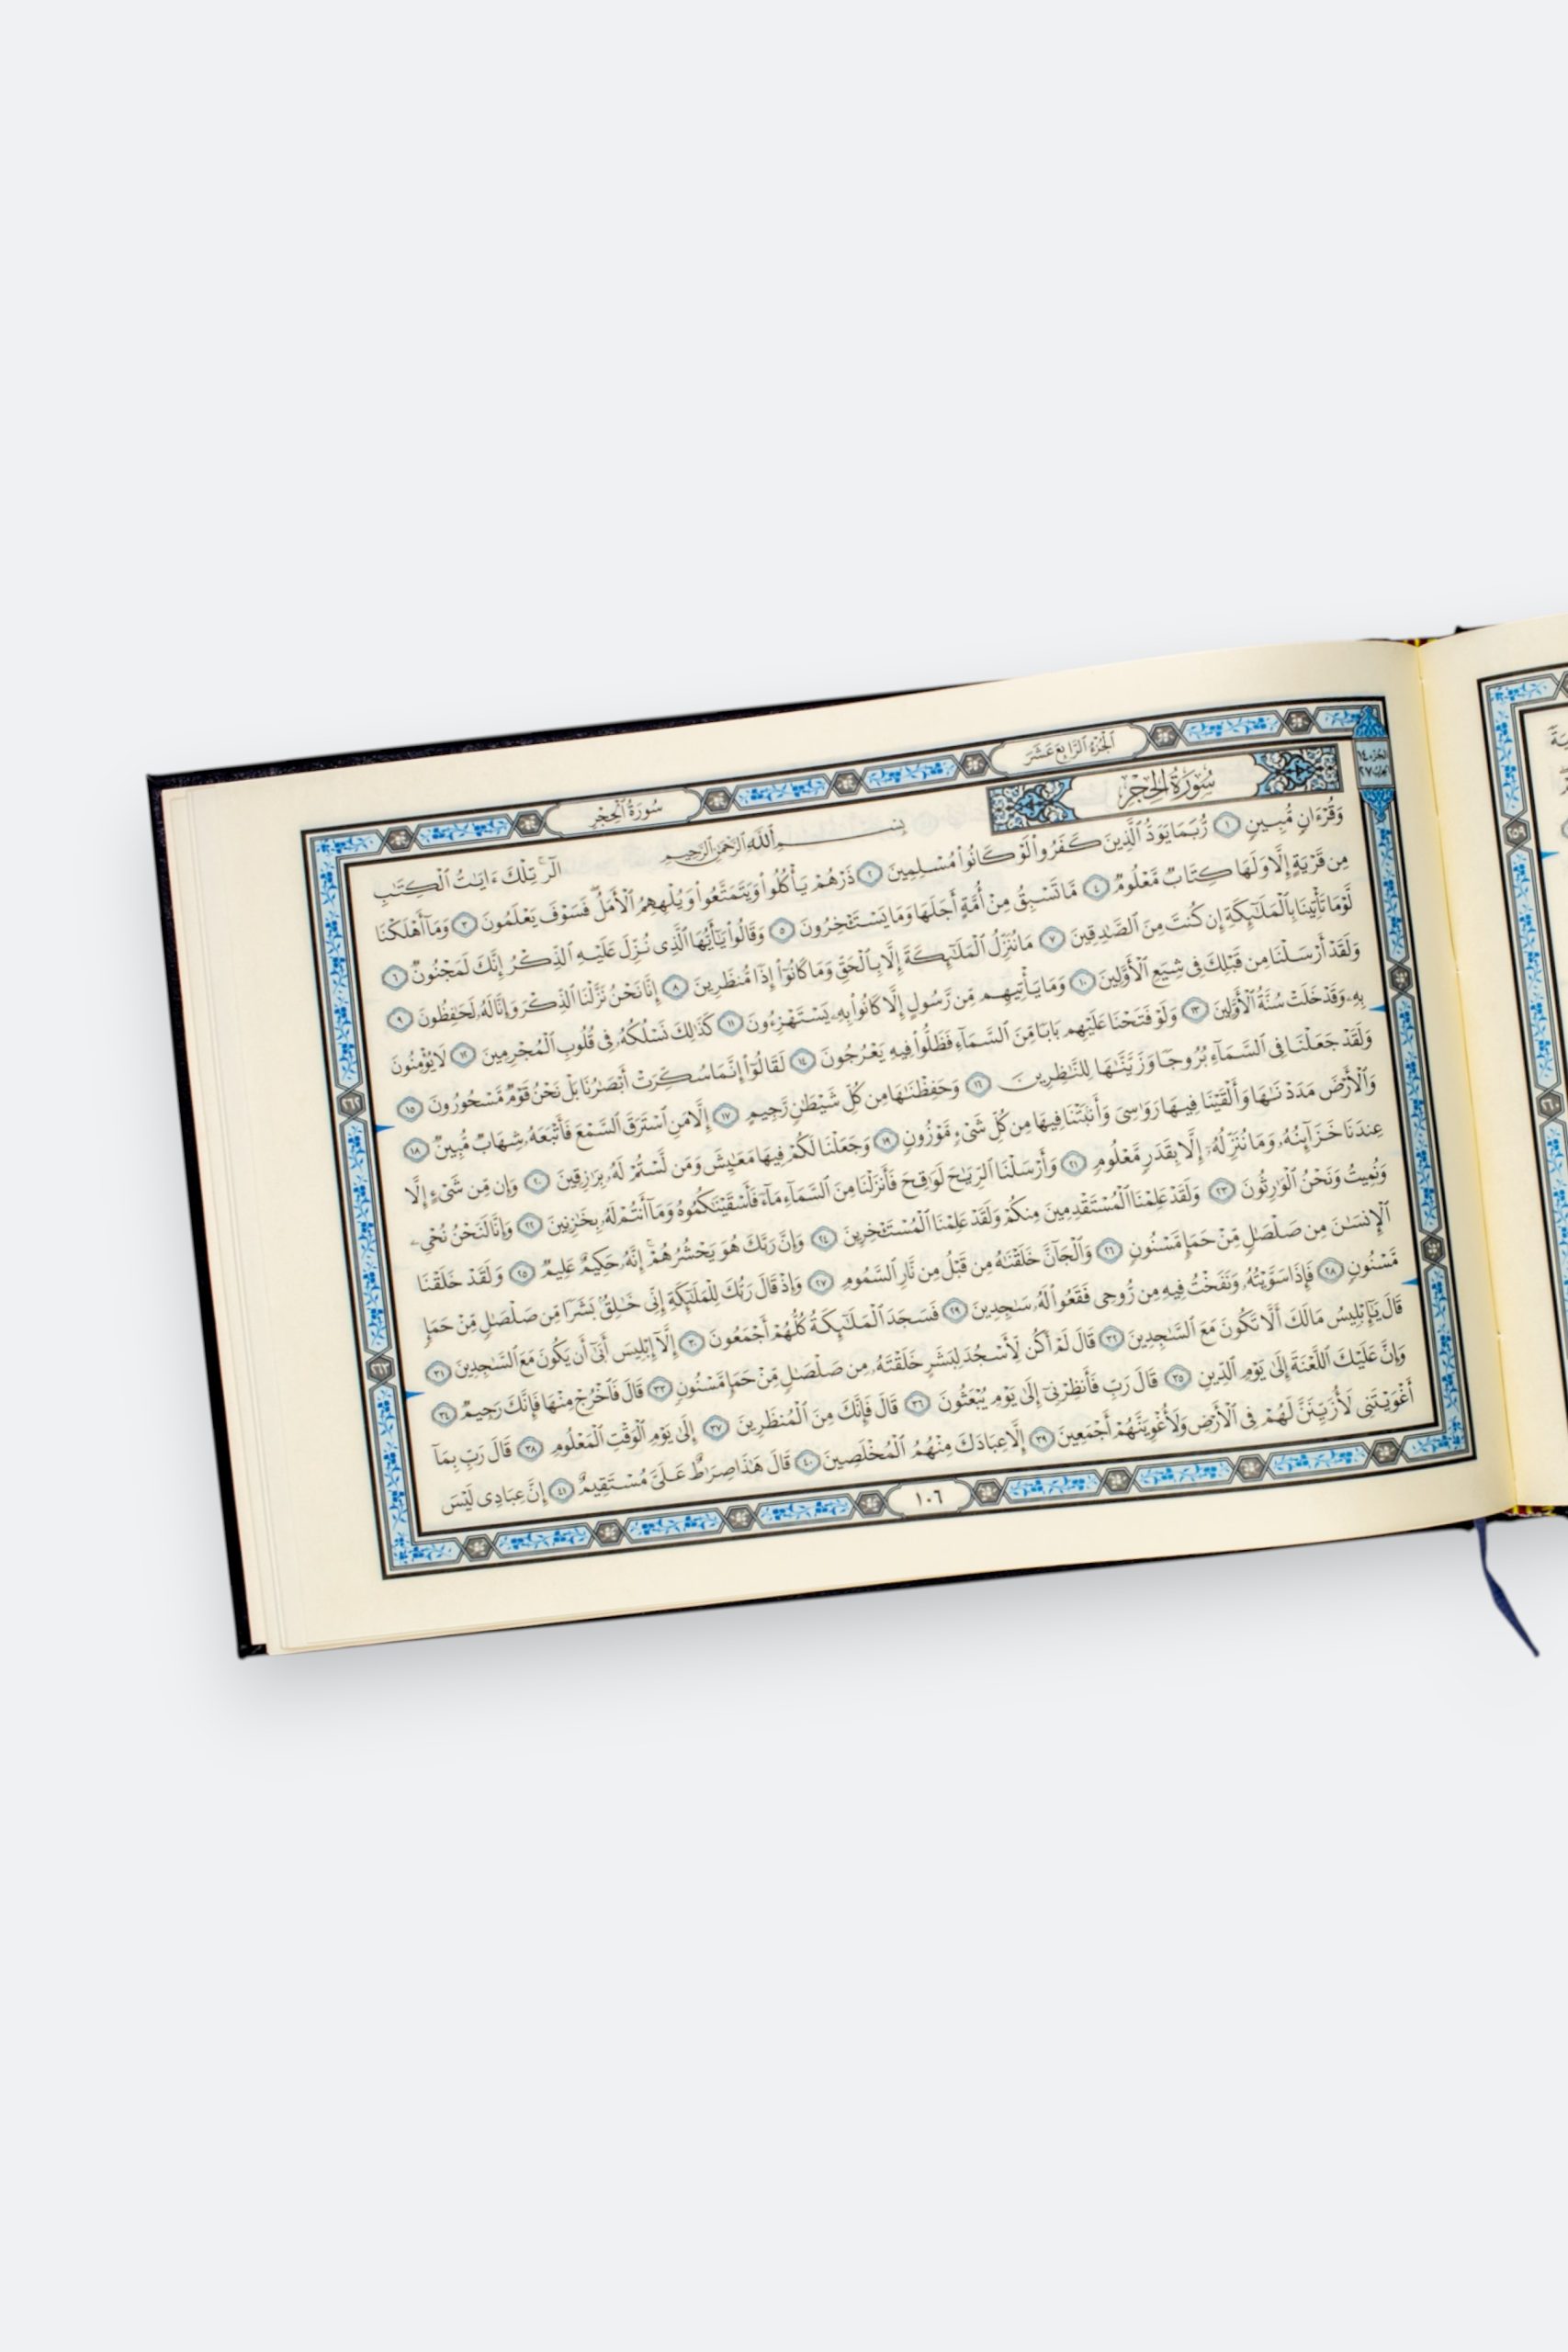 الجُزْءُ الرَّابِعَ عَشَرَ
سُورَةُ الحِجْرِ
الجزء ١٤
الحزب ٢٧
سُورَةُ الحِجْرِ
بِسْمِ ٱللَّهِ ٱلرَّحْمَٰنِ ٱلرَّحِيمِ
الٓر ۚ تِلْكَ ءَايَٰتُ ٱلْكِتَٰبِ
وَقُرْءَانٍ مُّبِينٍ ١ رُّبَمَا يَوَدُّ ٱلَّذِينَ كَفَرُوا۟ لَوْ كَانُوا۟ مُسْلِمِينَ ٢ ذَرْهُمْ يَأْكُلُوا۟ وَيَتَمَتَّعُوا۟ وَيُلْهِهِمُ ٱلْأَمَلُ ۖ فَسَوْفَ يَعْلَمُونَ ٣ وَمَآ أَهْلَكْنَا
مِن قَرْيَةٍ إِلَّا وَلَهَا كِتَابٌ مَّعْلُومٌ ٤ مَّا تَسْبِقُ مِنْ أُمَّةٍ أَجَلَهَا وَمَا يَسْتَـْٔخِرُونَ ٥ وَقَالُوا۟ يَٰٓأَيُّهَا ٱلَّذِى نُزِّلَ عَلَيْهِ ٱلذِّكْرُ إِنَّكَ لَمَجْنُونٌ ٦
لَّوْ مَا تَأْتِينَا بِٱلْمَلَٰٓئِكَةِ إِن كُنتَ مِنَ ٱلصَّٰدِقِينَ ٧ مَا نُنَزِّلُ ٱلْمَلَٰٓئِكَةَ إِلَّا بِٱلْحَقِّ وَمَا كَانُوٓا۟ إِذًا مُّنظَرِينَ ٨ إِنَّا نَحْنُ نَزَّلْنَا ٱلذِّكْرَ وَإِنَّا لَهُۥ لَحَٰفِظُونَ ٩
وَلَقَدْ أَرْسَلْنَا مِن قَبْلِكَ فِى شِيَعِ ٱلْأَوَّلِينَ ١٠ وَمَا يَأْتِيهِم مِّن رَّسُولٍ إِلَّا كَانُوا۟ بِهِۦ يَسْتَهْزِءُونَ ١١ كَذَٰلِكَ نَسْلُكُهُۥ فِى قُلُوبِ ٱلْمُجْرِمِينَ ١٢ لَا يُؤْمِنُونَ
بِهِۦ وَقَدْ خَلَتْ سُنَّةُ ٱلْأَوَّلِينَ ١٣ وَلَوْ فَتَحْنَا عَلَيْهِم بَابًا مِّنَ ٱلسَّمَآءِ فَظَلُّوا۟ فِيهِ يَعْرُجُونَ ١٤ لَقَالُوٓا۟ إِنَّمَا سُكِّرَتْ أَبْصَٰرُنَا بَلْ نَحْنُ قَوْمٌ مَّسْحُورُونَ ١٥
وَلَقَدْ جَعَلْنَا فِى ٱلسَّمَآءِ بُرُوجًا وَزَيَّنَّٰهَا لِلنَّٰظِرِينَ ١٦ وَحَفِظْنَٰهَا مِن كُلِّ شَيْطَٰنٍ رَّجِيمٍ ١٧ إِلَّا مَنِ ٱسْتَرَقَ ٱلسَّمْعَ فَأَتْبَعَهُۥ شِهَابٌ مُّبِينٌ ١٨
وَٱلْأَرْضَ مَدَدْنَٰهَا وَأَلْقَيْنَا فِيهَا رَوَٰسِىَ وَأَنۢبَتْنَا فِيهَا مِن كُلِّ شَىْءٍ مَّوْزُونٍ ١٩ وَجَعَلْنَا لَكُمْ فِيهَا مَعَٰيِشَ وَمَن لَّسْتُمْ لَهُۥ بِرَٰزِقِينَ ٢٠ وَإِن مِّن شَىْءٍ إِلَّا
عِندَنَا خَزَآئِنُهُۥ وَمَا نُنَزِّلُهُۥٓ إِلَّا بِقَدَرٍ مَّعْلُومٍ ٢١ وَأَرْسَلْنَا ٱلرِّيَٰحَ لَوَٰقِحَ فَأَنزَلْنَا مِنَ ٱلسَّمَآءِ مَآءً فَأَسْقَيْنَٰكُمُوهُ وَمَآ أَنتُمْ لَهُۥ بِخَٰزِنِينَ ٢٢ وَإِنَّا لَنَحْنُ نُحْىِۦ
وَنُمِيتُ وَنَحْنُ ٱلْوَٰرِثُونَ ٢٣ وَلَقَدْ عَلِمْنَا ٱلْمُسْتَقْدِمِينَ مِنكُمْ وَلَقَدْ عَلِمْنَا ٱلْمُسْتَـْٔخِرِينَ ٢٤ وَإِنَّ رَبَّكَ هُوَ يَحْشُرُهُمْ ۚ إِنَّهُۥ حَكِيمٌ عَلِيمٌ ٢٥ وَلَقَدْ خَلَقْنَا
ٱلْإِنسَٰنَ مِن صَلْصَٰلٍ مِّنْ حَمَإٍ مَّسْنُونٍ ٢٦ وَٱلْجَآنَّ خَلَقْنَٰهُ مِن قَبْلُ مِن نَّارِ ٱلسَّمُومِ ٢٧ وَإِذْ قَالَ رَبُّكَ لِلْمَلَٰٓئِكَةِ إِنِّى خَٰلِقٌۢ بَشَرًا مِّن صَلْصَٰلٍ مِّنْ حَمَإٍ
مَّسْنُونٍ ٢٨ فَإِذَا سَوَّيْتُهُۥ وَنَفَخْتُ فِيهِ مِن رُّوحِى فَقَعُوا۟ لَهُۥ سَٰجِدِينَ ٢٩ فَسَجَدَ ٱلْمَلَٰٓئِكَةُ كُلُّهُمْ أَجْمَعُونَ ٣٠ إِلَّآ إِبْلِيسَ أَبَىٰٓ أَن يَكُونَ مَعَ ٱلسَّٰجِدِينَ ٣١
قَالَ يَٰٓإِبْلِيسُ مَا لَكَ أَلَّا تَكُونَ مَعَ ٱلسَّٰجِدِينَ ٣٢ قَالَ لَمْ أَكُن لِّأَسْجُدَ لِبَشَرٍ خَلَقْتَهُۥ مِن صَلْصَٰلٍ مِّنْ حَمَإٍ مَّسْنُونٍ ٣٣ قَالَ فَٱخْرُجْ مِنْهَا فَإِنَّكَ رَجِيمٌ ٣٤
وَإِنَّ عَلَيْكَ ٱللَّعْنَةَ إِلَىٰ يَوْمِ ٱلدِّينِ ٣٥ قَالَ رَبِّ فَأَنظِرْنِىٓ إِلَىٰ يَوْمِ يُبْعَثُونَ ٣٦ قَالَ فَإِنَّكَ مِنَ ٱلْمُنظَرِينَ ٣٧ إِلَىٰ يَوْمِ ٱلْوَقْتِ ٱلْمَعْلُومِ ٣٨ قَالَ رَبِّ بِمَآ
أَغْوَيْتَنِى لَأُزَيِّنَنَّ لَهُمْ فِى ٱلْأَرْضِ وَلَأُغْوِيَنَّهُمْ أَجْمَعِينَ ٣٩ إِلَّا عِبَادَكَ مِنْهُمُ ٱلْمُخْلَصِينَ ٤٠ قَالَ هَٰذَا صِرَٰطٌ عَلَىَّ مُسْتَقِيمٌ ٤١ إِنَّ عِبَادِى لَيْسَ
٢٦٢
٢٦٣
١٠٦